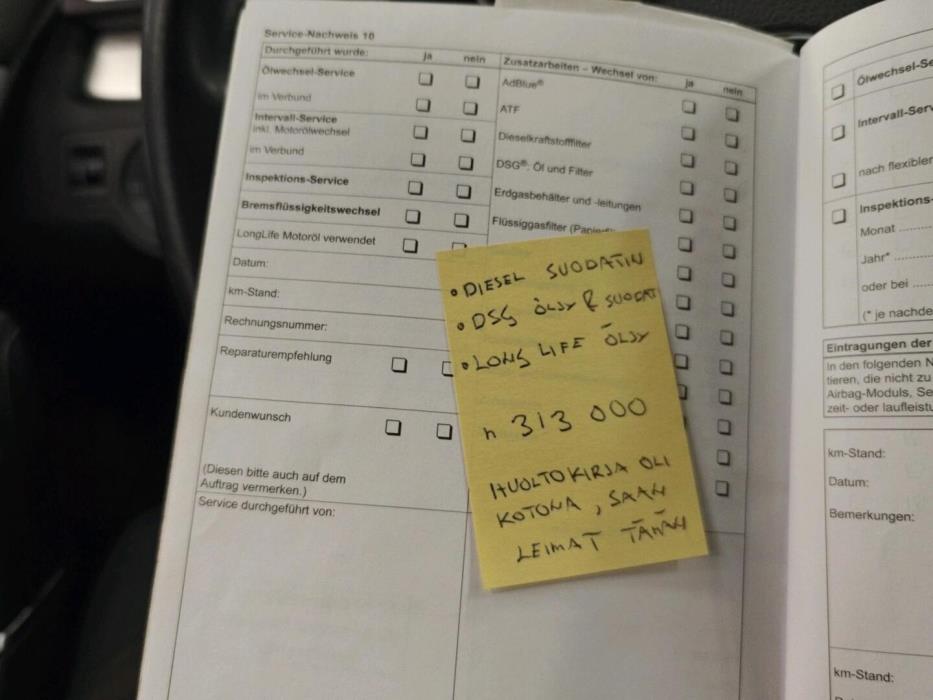 Service-Nachweis 10
Durchgeführt wurde: ja nein
Ölwechsel-Service
im Verbund
Intervall-Service
inkl. Motorölwechsel
im Verbund
Inspektions-Service
Bremsflüssigkeitswechsel
LongLife Motoröl verwendet
Datum:
km-Stand:
Rechnungsnummer:
Reparaturempfehlung
Kundenwunsch
(Diesen bitte auch auf dem
Auftrag vermerken.)
Service durchgeführt von:
Zusatzarbeiten – Wechsel von: ja nein
AdBlue®
ATF
Dieselkraftstofffilter
DSG®: Öl und Filter
Erdgasbehälter und -leitungen
Flüssiggasfilter
• DIESEL SUODATIN
• DSG ÖLJY & SUODAT
• LONG LIFE ÖLJY
n 313 000
HUOLTOKIRJA OLI
KOTONA, SAAN
LEIMAT TÄHÄN
Ölwechsel-Se
Intervall-Serv
nach flexibler
Inspektions-
Monat
Jahr*
oder bei
(* je nachde
Eintragungen der
In den folgenden N
tieren, die nicht zu
Airbag-Moduls, Se
zeit- oder laufleistu
km-Stand:
Datum:
Bemerkungen:
km-Stand: